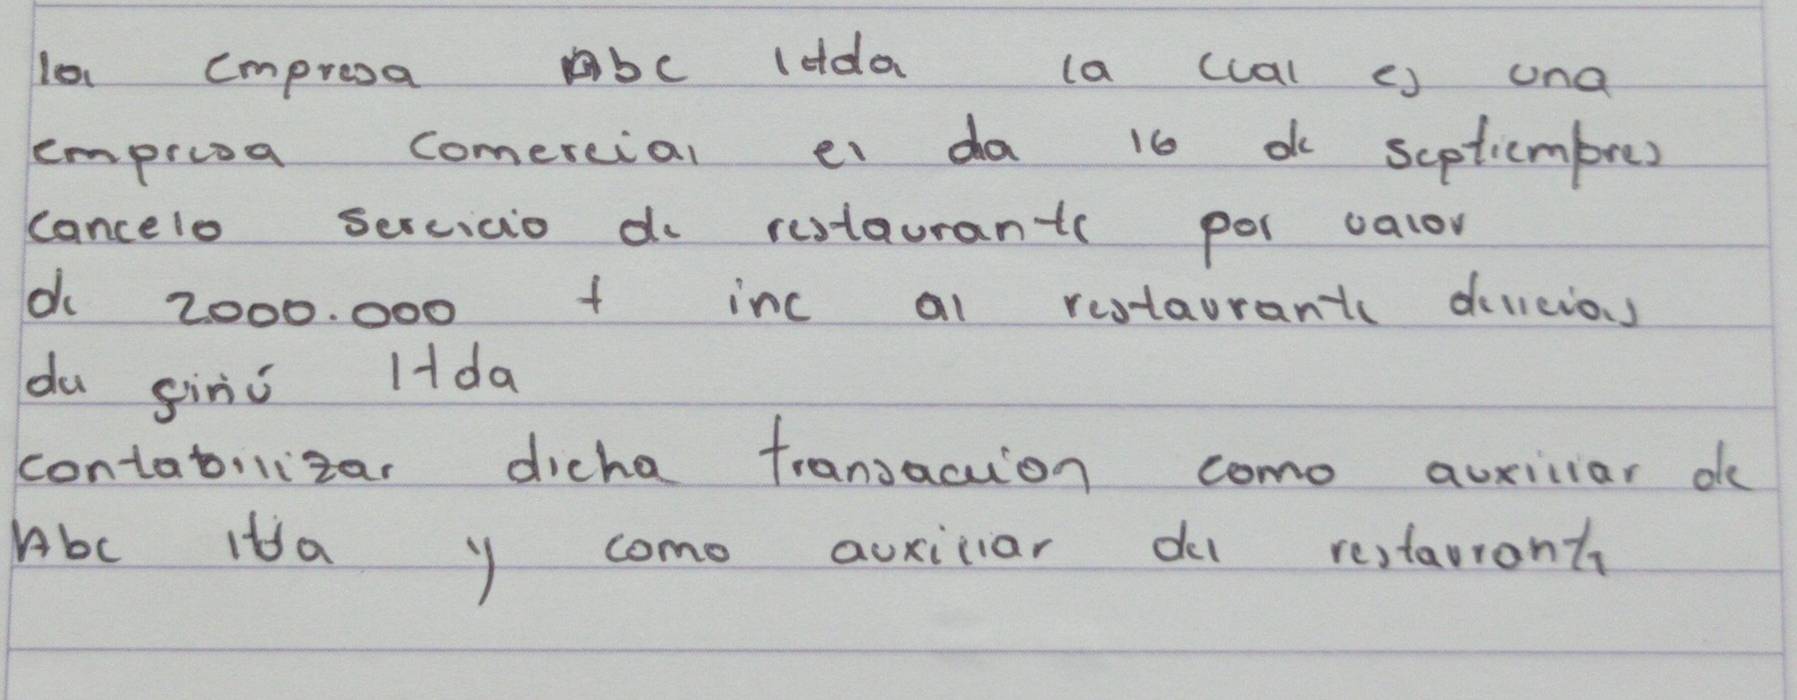 la empresa Abc ltda la cual es una
empresa comercial el dia 16 de septiembres
cancelo servicio de restaurante por valor
de 2000.000 + inc al restaurante delicias
del sinú ltda
contabilizar dicha transaccion como auxiliar de
Abc ltda y como auxiliar del restaurante